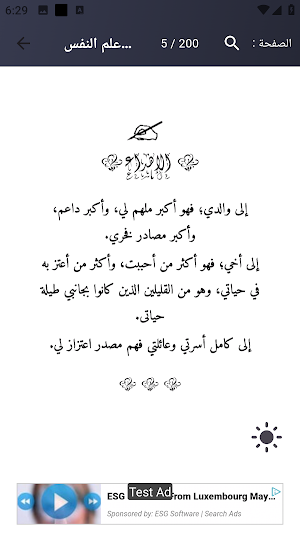 6:29
علم النفس...
5 / 200
الصفحة :
الإهداء
إلى والدي؛ فهو أكبر ملهم لي، وأكبر داعم،
وأكبر مصادر فخري.
إلى أخي؛ فهو أكثر من أحببت، وأكثر من أعتز به
في حياتي، وهو من القليلين الذين كانوا بجانبي طيلة
حياتي.
إلى كامل أسرتي وعائلتي فهم مصدر اعتزاز لي.
Test Ad
ESG from Luxembourg May...
Sponsored by: ESG Software | Search Ads